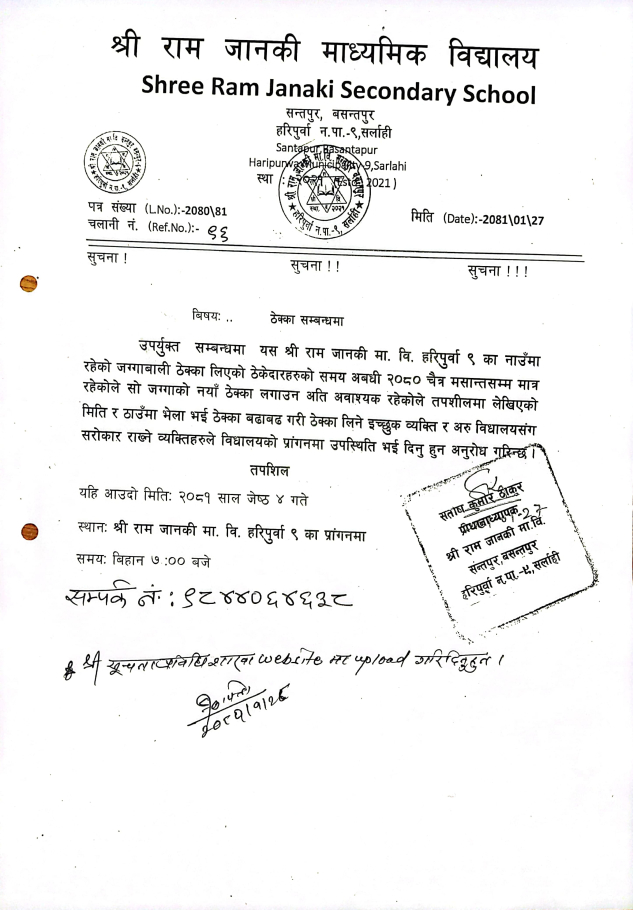 श्री राम जानकी माध्यमिक विद्यालय
Shree Ram Janaki Secondary School
सन्तपुर, बसन्तपुर
हरिपुर्वा न.पा.-९,सर्लाही
Santapur,Basantapur
Haripurwa Municipality-9,Sarlahi
स्था : 2021 )
पत्र संख्या (L.No.):-2080\81
मिति (Date):-2081\01\27
चलानी नं. (Ref.No.):- ९६
सुचना !
सुचना ! !
सुचना ! ! !
बिषय: .. ठेक्का सम्बन्धमा
उपर्युक्त सम्बन्धमा यस श्री राम जानकी मा. वि. हरिपुर्वा ९ का नाउँमा
रहेको जग्गाबाली ठेक्का लिएको ठेकेदारहरुको समय अबधी २०८० चैत्र मसान्तसम्म मात्र
रहेकोले सो जग्गाको नयाँ ठेक्का लगाउन अति अवाश्यक रहेकोले तपशीलमा लेखिएको
मिति र ठाउँमा भेला भई ठेक्का बढाबढ गरी ठेक्का लिने इच्छुक व्यक्ति र अरु विधालयसंग
सरोकार राख्ने व्यक्तिहरुले विधालयको प्रांगनमा उपस्थिति भई दिनु हुन अनुरोध गरिन्छ ।
तपशिल
यहि आउदो मिति: २०८१ साल जेष्ठ ४ गते
स्थान: श्री राम जानकी मा. वि. हरिपुर्वा ९ का प्रांगनमा
समय: बिहान ७:०० बजे
सम्पर्क नं : ९८४४०६४६३८
कुमार ठाकुर
श्री राम जानकी मा.वि.
संन्तपुर,बसन्तपुर
हरिपुर्वा न.पा.-९,सर्लाही
श्री सूचना प्रविधि शाखा website मा upload गरिदिनुहुन ।